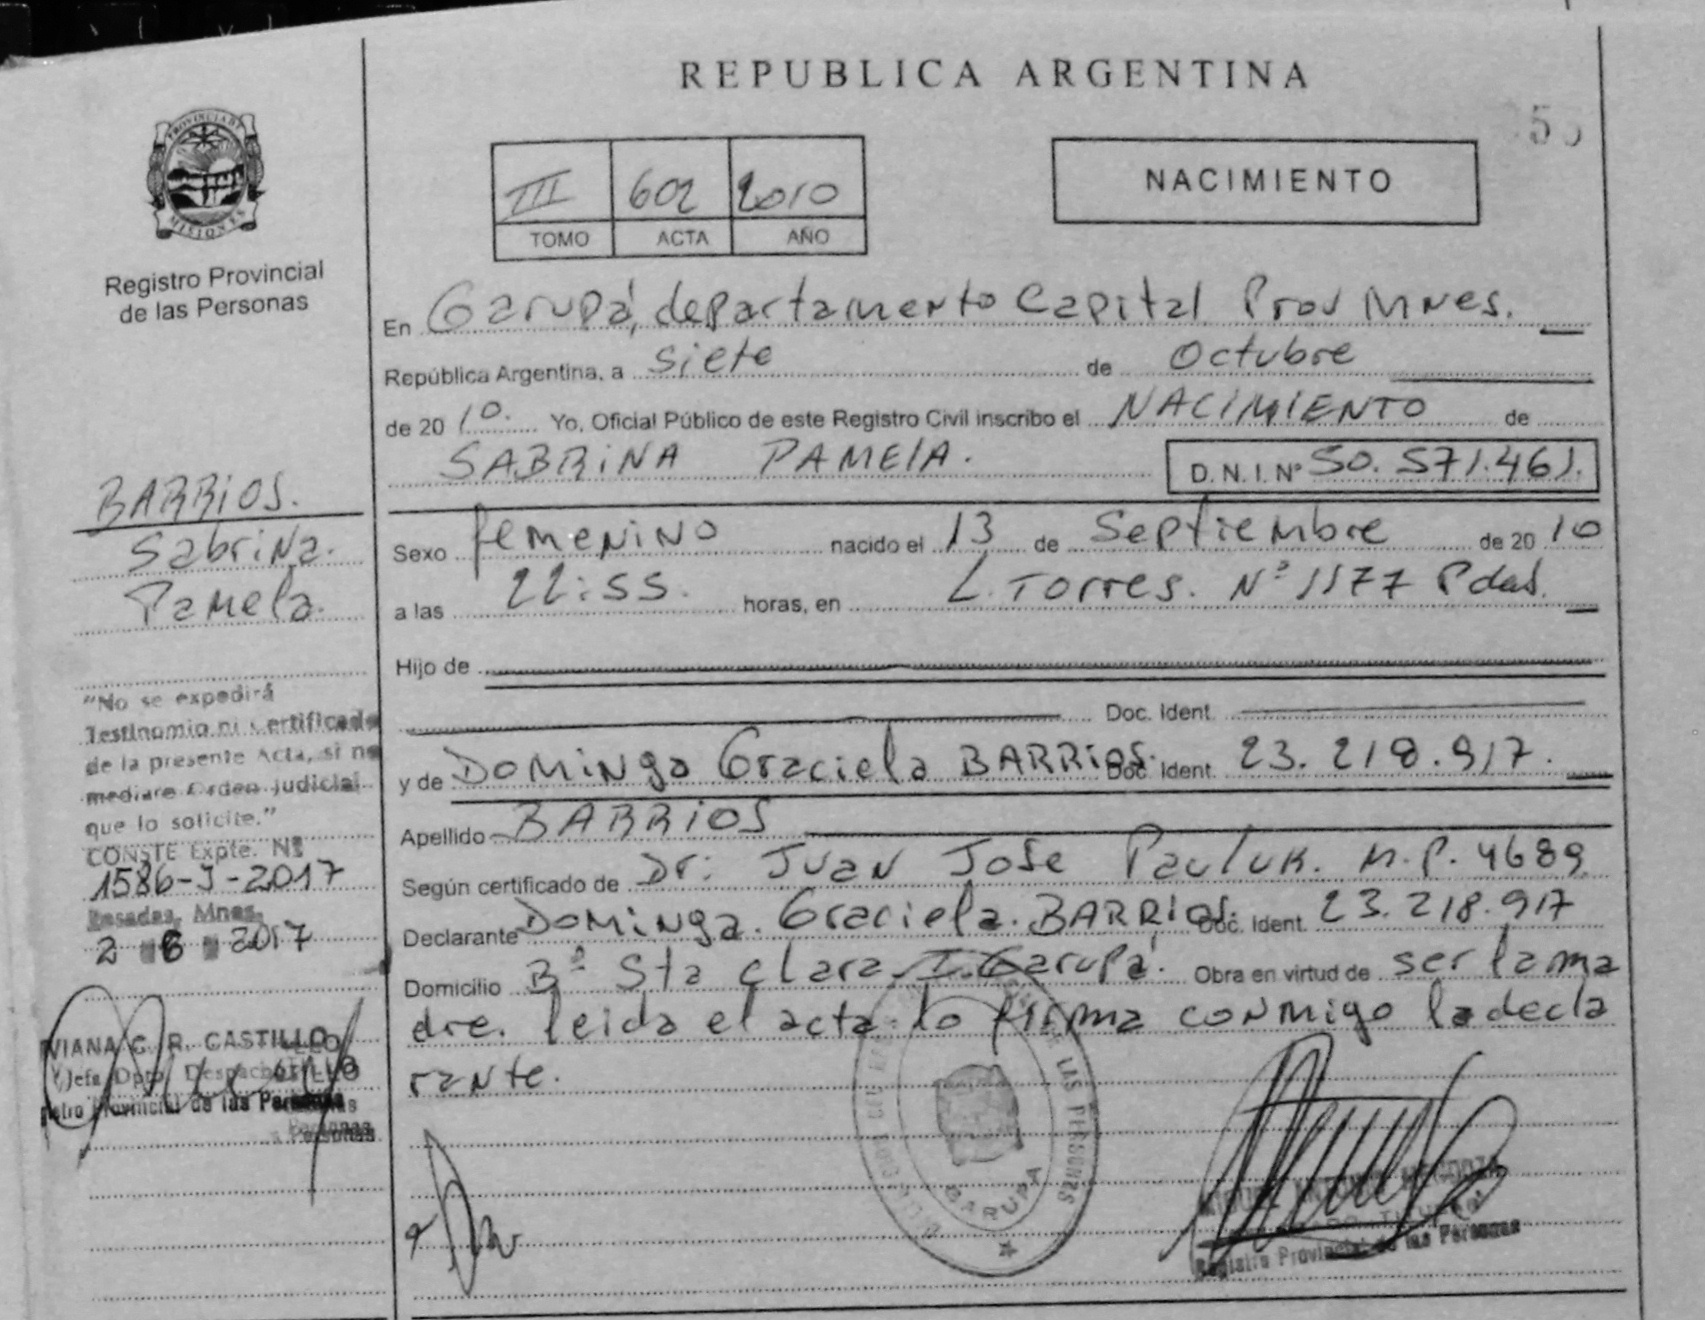 REPUBLICA ARGENTINA
PROVINCIA DE
MISIONES
Registro Provincial
de las Personas
III 602 2010
TOMO ACTA AÑO
NACIMIENTO
En Garupá, departamento Capital Prov Mnes.
República Argentina, a siete de Octubre
de 2010. Yo, Oficial Público de este Registro Civil inscribo el NACIMIENTO de
SABRINA PAMELA. D.N.I. Nº 50.571.461.
Sexo femenino nacido el 13 de Septiembre de 2010
a las 22:55. horas, en L. Torres. Nº 1177 Pdas.
Hijo de
Doc. Ident.
y de DOMINga Graciela BARRIOS. Doc. Ident. 23.218.917.
Apellido BARRIOS
Según certificado de Dr: JUAN JOSE M.P. 4689
Declarante DOMINga. Graciela. BARRIOS. Doc. Ident. 23.218.917
Domicilio Bº Sta Clara I. Garupá. Obra en virtud de ser la ma
dre. leida el acta lo firma conmigo la decla
rante.
BARRIOS.
Sabrina.
Pamela.
"No se expedirá
Testinomio ni Certificado
de la presente Acta, si no
mediare Orden Judicial
que lo solicite."
CONSTE Expte. Nº
1586-J-2017
Posadas, Mnes.
2 6 2017
VIANA C. R. CASTILLO
Jefa Dpto. Despacho
Provincial de las Personas
Personas
DE LAS PERSONAS
GARUPA
Registro Provincial de las Personas